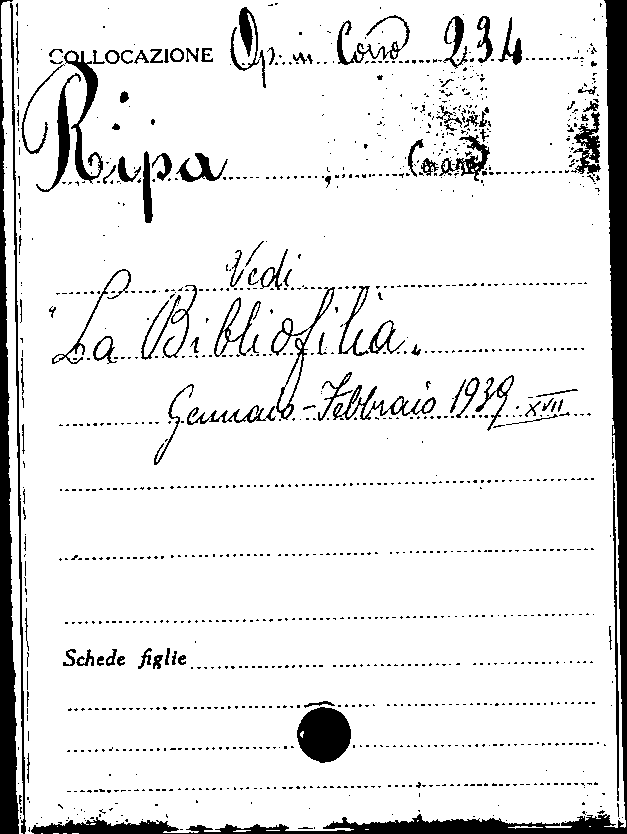 COLLOCAZIONE Op. in Corso 234
Ripa
Vedi
"La Bibliofilia„
Gennaio-Febbraio 1939. XVII
Schede figlie